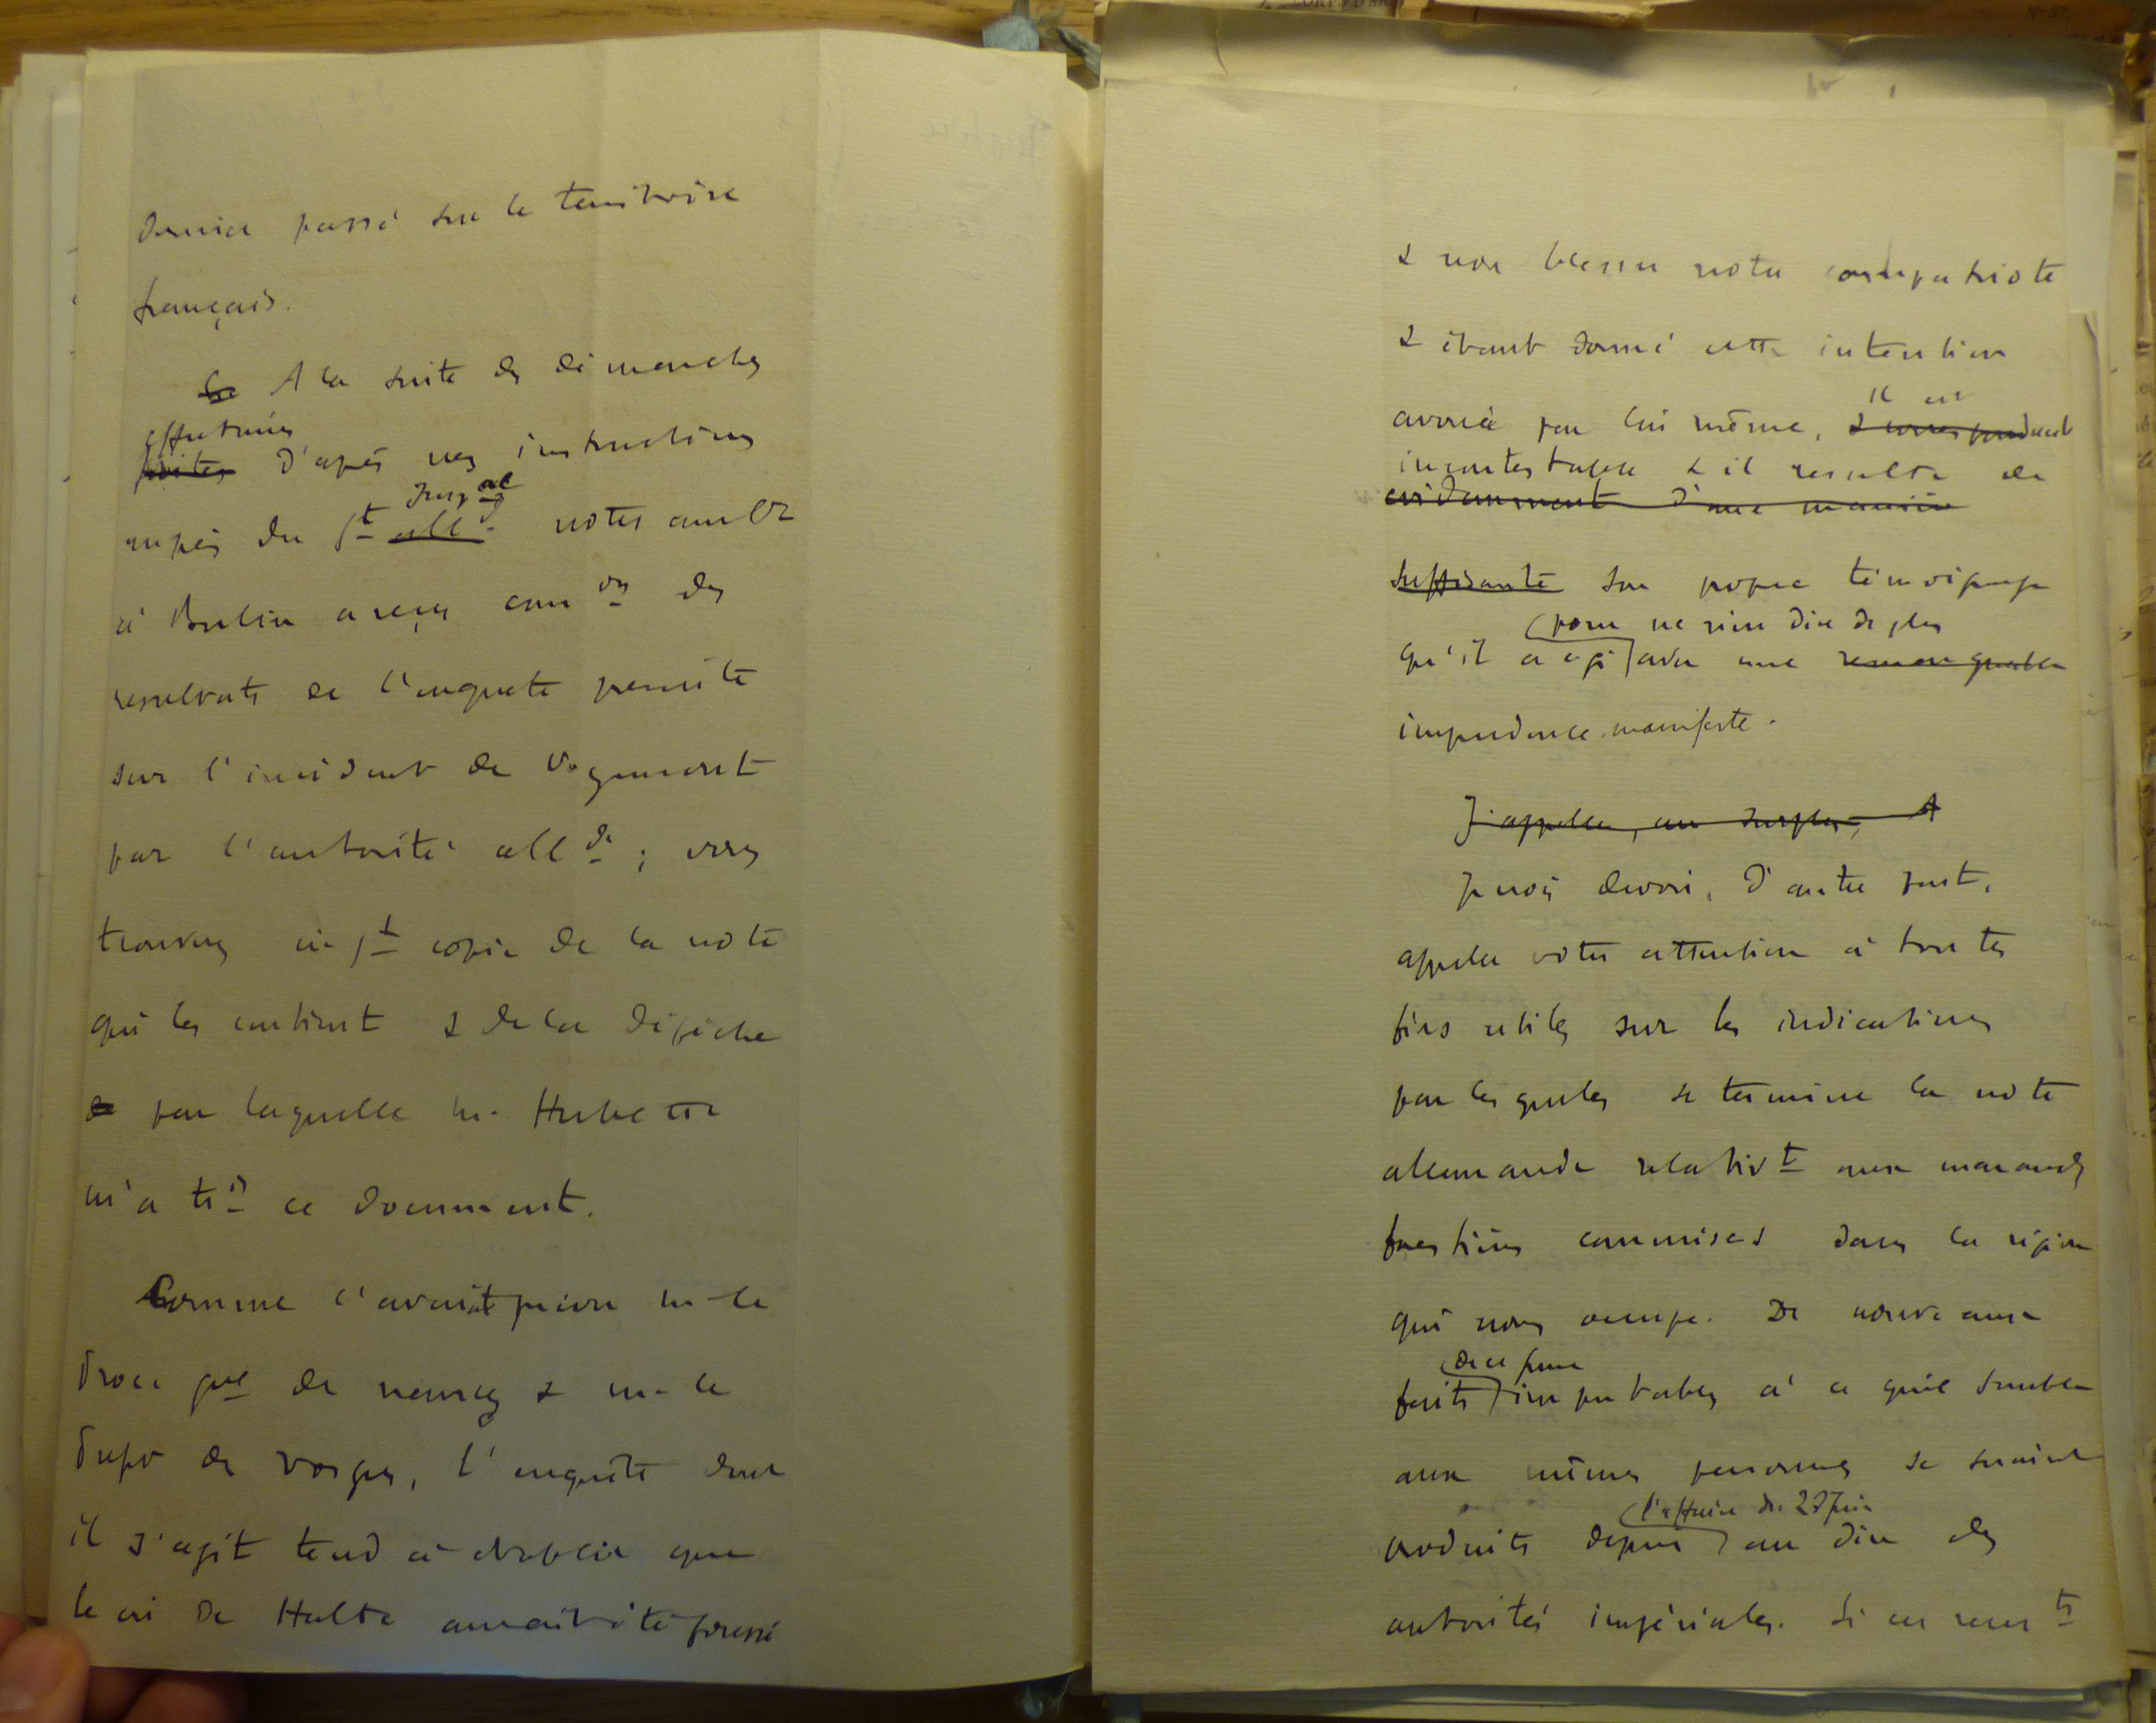 dernier passé sur le territoire
français.
A la suite des démarches
effectuées
faites d'après mes instructions
Impal
auprès du Gt alld notre ambr
à Berlin a reçu comon des
résultats de l'enquête
sur l'incident de Vexaincourt
par l'autorité allde ; vous
trouverez ci jt copie de la note
qui les contient & de la dépêche
par laquelle M. Herbette
m'a tis ce document.
Comme l'avait prévu M. le
Proc gal de Nancy & M. le
Préfet des Vosges, l'enquête dont
il s'agit tend à établir que
le cri de Halte aurait été poussé
& non blesser notre compatriote
& étant donné cette intention
avouée par lui même, il est
& correspondent
incontestable & il résulte de
évidemment d'une manière
suffisante son propre témoignage
(pour ne rien dire de plus
qu'il a agi avec une remarquable
imprudence manifeste.
J'appelle, au surplus, A
Je crois devoir, d'autre part,
appeler votre attention à toutes
fins utiles sur les indications
par lesquelles se termine la note
allemande relativt aux
forestiers commises dans la région
qui nous occupe. De nouveaux
(de ce genre
faits imputables à ce qu'il semble
aux mêmes personnes se seraient
(l'affaire du 27 Juin
produits depuis au dire des
autorités impériales. Si ces rensts